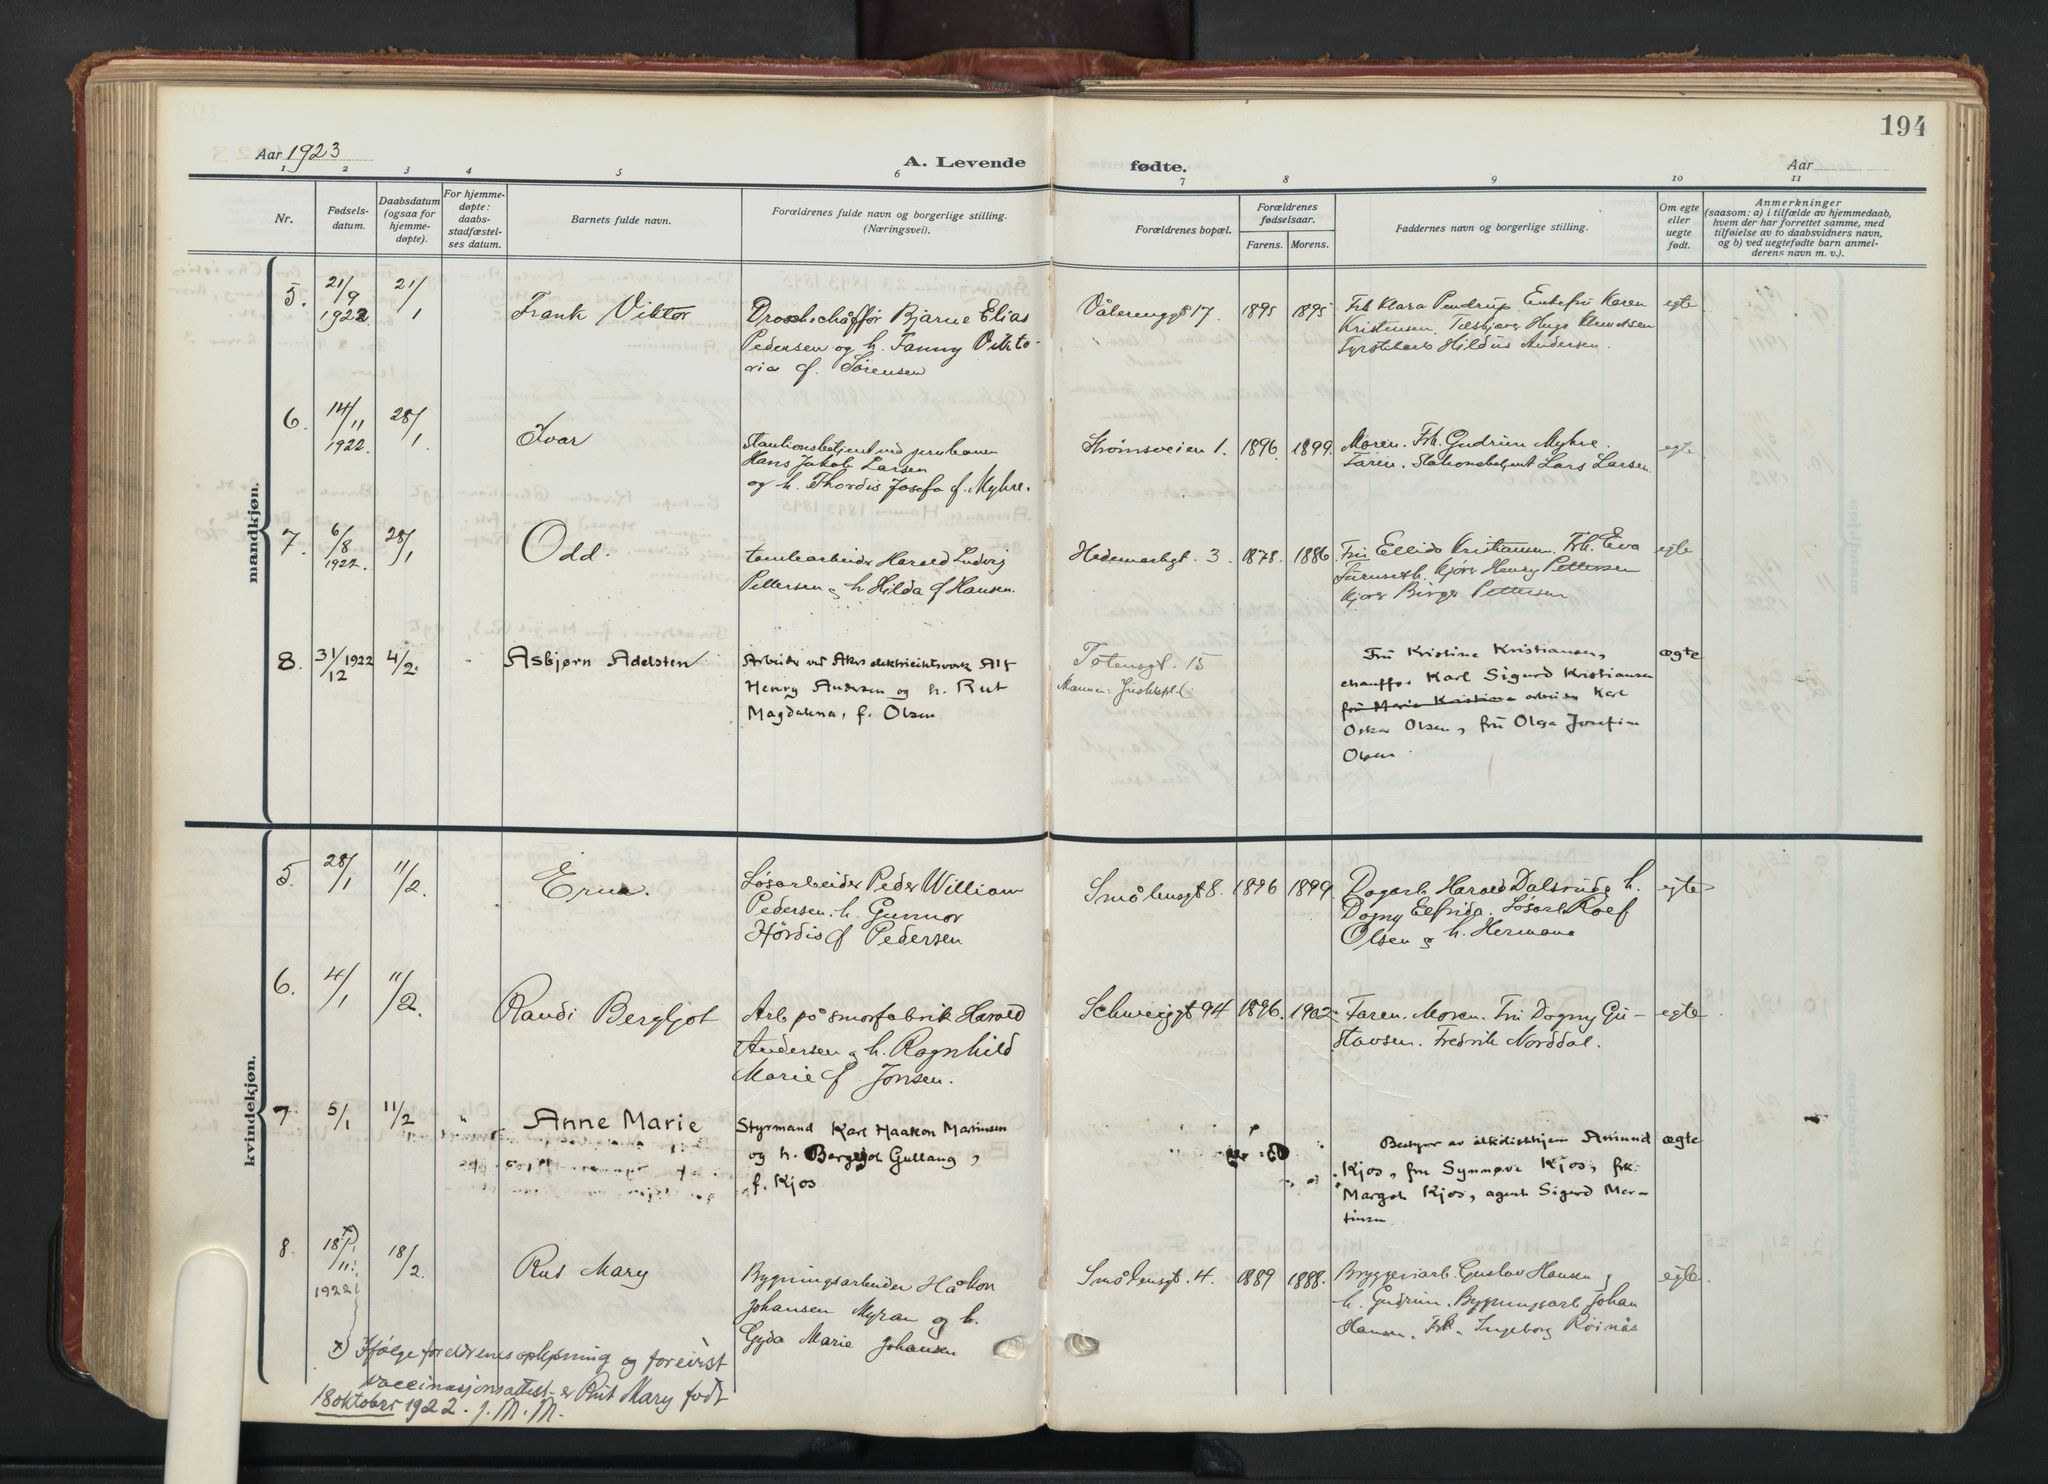 194
Aar 1923
A. Levende
fødte.
Aar
1 2 3 4 5 6 7 8 9 10 11
Nr.
Fødsels-
datum.
Daabsdatum
(ogsaa for
hjemme-
døpte).
For hjemme-
døpte:
daabs-
stadfæstel-
ses datum.
Barnets fulde navn.
Forældrenes fulde navn og borgerlige stilling.
(Næringsvei).
Forældrenes bopæl.
Forældrenes
fødselsaar.
Farens. Morens.
Faddernes navn og borgerlige stilling.
Om egte
eller
uegte
født.
Anmerkninger
(saasom: a) i tilfælde av hjemmedaab,
hvem der har forrettet samme, med
tilføielse av to daabsvidners navn,
og b) ved uegtefødte barn anmel-
derens navn m. v.).
mandkjøn.
5. 21/9 1922. 21/1 Frank Viktor
Droscheschåffør Bjarne Elias
Pedersen og h. Fanny Vikto-
ria f. Sørensen
Vålerenggt 17. 1895 1895
Frk Klara Pendrup. Enkefru Karen
Kristensen. Hugo
Hildus Andersen.
egte
6. 14/11 1922. 28/1 Ivar
Stationsbetjent ved jernbanen
Hans Jakob Larsen
og h. Thordis Josefa f. Myhre.
Strømsveien 1. 1896. 1899.
Moren. Frk. Gudrun Myhre.
Faren. Stationsbetjent Lars Larsen.
egte
7. 6/8 1922. 28/1 Odd.
Harald Ludvig
Pettersen og h Hilda f Hansen.
Hedemarkgt. 3. 1878. 1886.
Fru Ellida Kristiansen. Frk. Eva
Furuseth. kjører Henry Pettersen
kjører Birger Pettersen
egte
8. 31/12 1922 4/2. Asbjørn Adelsten
Arbeider ved Akers elektricitetsverk Alf
Henry Andersen og h. Rut
Magdalena, f. Olsen
Totensgt. 15
Fru Kristine Kristiansen,
chauffør Karl Sigurd Kristiansen
fru Marie Kristine arbeider Karl
Oskar Olsen, fru Olga Josefine
Olsen.
ægte
kvindekjøn.
5. 28/1 11/2. Erna.
Løsarbeider Peder William
Pedersen. h. Gunnor
Hjørdis f Pedersen.
Smålensgt 8. 1896 1899.
Dagarb Harald Dalsrud og h.
Dagny Elfrida. Løsarb Rolf
Olsen og h. Hermana
egte
6. 4/1 11/2. Randi Bergljot
Arb på smørfabrik Harald
Andersen og h. Ragnhild
Marie f Jonsen.
Schweigt 94 1896. 1902.
Faren. Moren. Fru Dagny Gu-
stavsen. Fredrik Norddal.
egte
7 5/1 11/2 " Anne Marie
Styrmand Karl Haakon Martinsen
og h. Bergljot Gullaug,
f. Kjos
Bestyrer av Amund
Kjos, fru Synnøve Kjos, frk.
Margot Kjos, agent Sigurd Mar-
tinsen
ægte
8. 18/11 x) 1922 18/2. Rut Mary
Bygningsarbeider Håkon
Johansen Myran og h.
Gyda Marie Johansen
Smålensgt. 4. 1889 1888.
Bryggeriarb. Gustav Hansen og
h. Gudrun. Bygningsarb Johan
Hansen. Frk. Ingeborg Röinås
egte.
x) Ifølge foreldrenes oplysning og forevist
vaccinasjonsattest er Rut Mary født
18 oktober 1922. J. M. M.